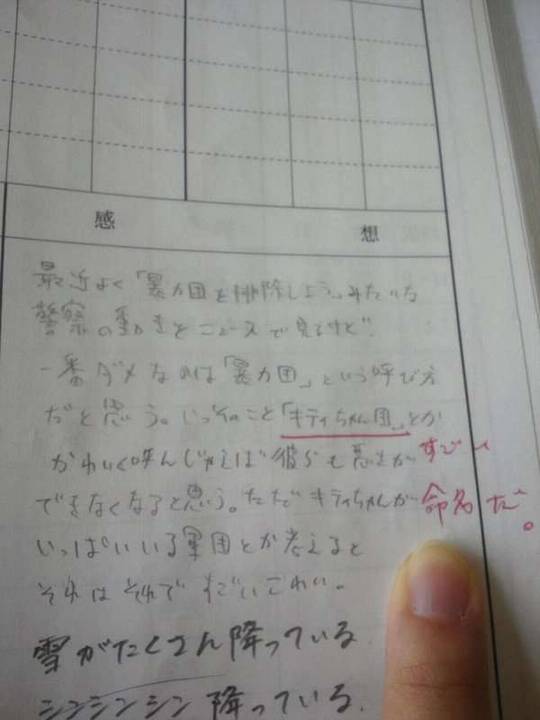 感 想
最近よく「暴力団を排除しよう」みたいな
警察の動きをニュースで見るけど
一番ダメなのは「暴力団」という呼び方
だと思う。いっそのこと「キティちゃん団」とか
かわいく呼んじゃえば彼らも悪さが
できなくなると思う。ただキティちゃんが
いっぱいいる軍団とか考えると
それはそれですごいこわい。
すごい
命名だ。
雪がたくさん降っている
シンシンシン降っている